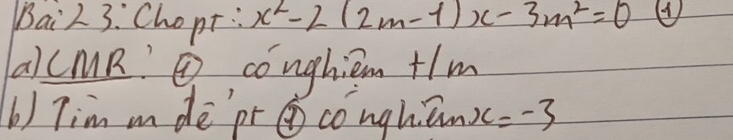 Bài 23: Cho pt: x² - 2(2m-1)x - 3m² = 0 ①
a) CMR: ① có nghiệm +/m
b) Tìm m để pt ① có nghiệm x = -3